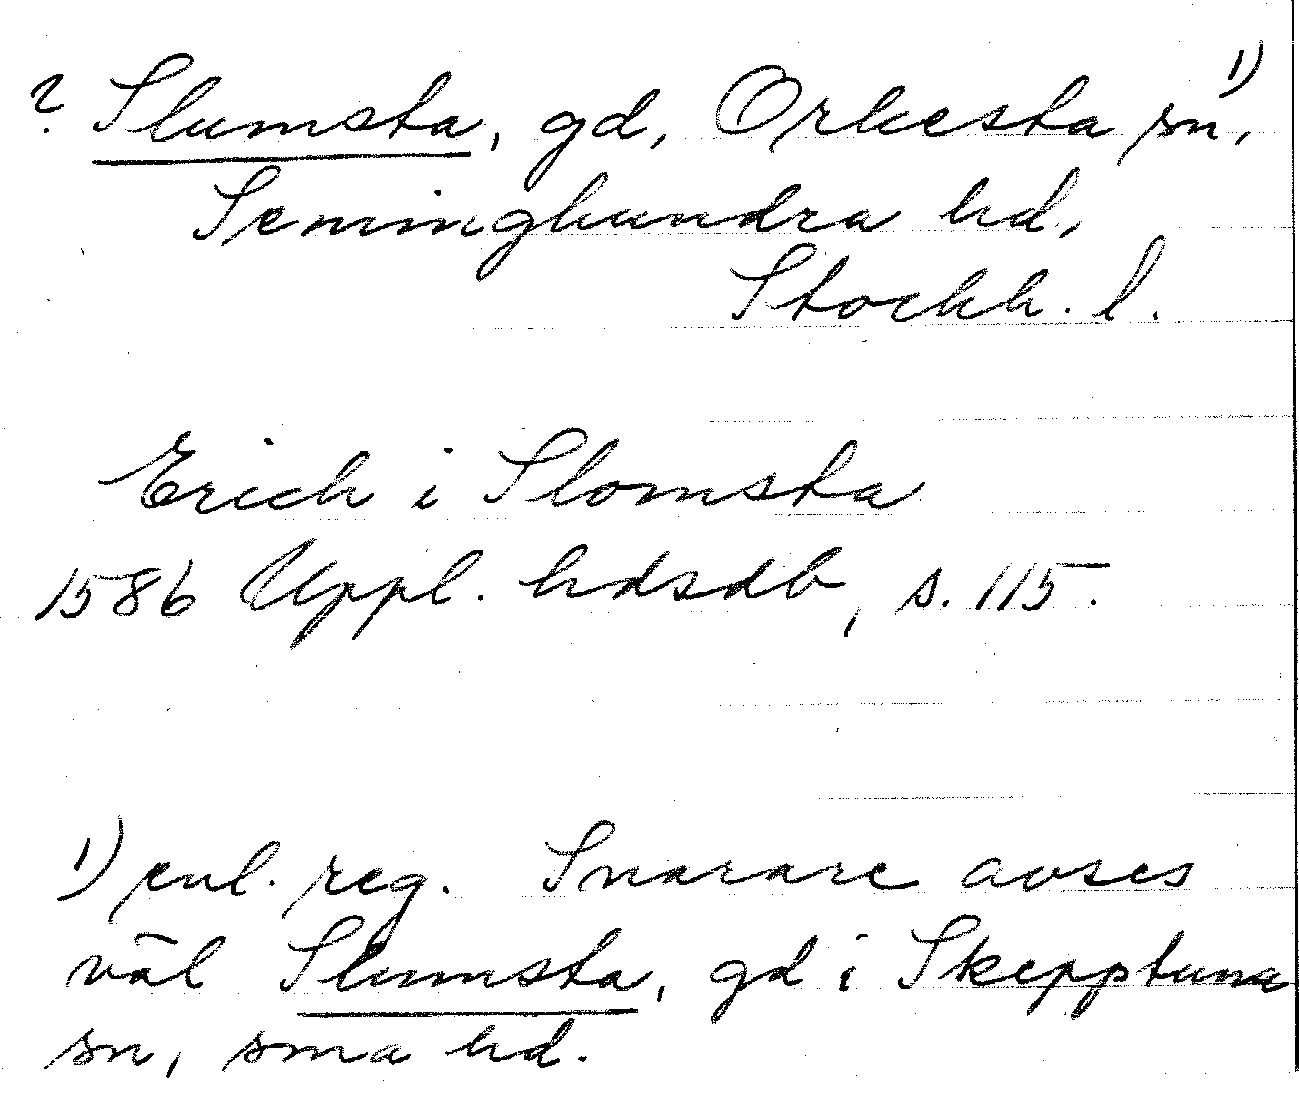 ? Slumsta, gd, Orkesta sn¹⁾,
Seminghundra hd,
Stockh. l.
Erich i Slomsta
1586 Uppl. hdsdb, s. 115.
1) enl. reg. Snarare avses
väl Slumsta, gd i Skepptuna
sn, sma hd.